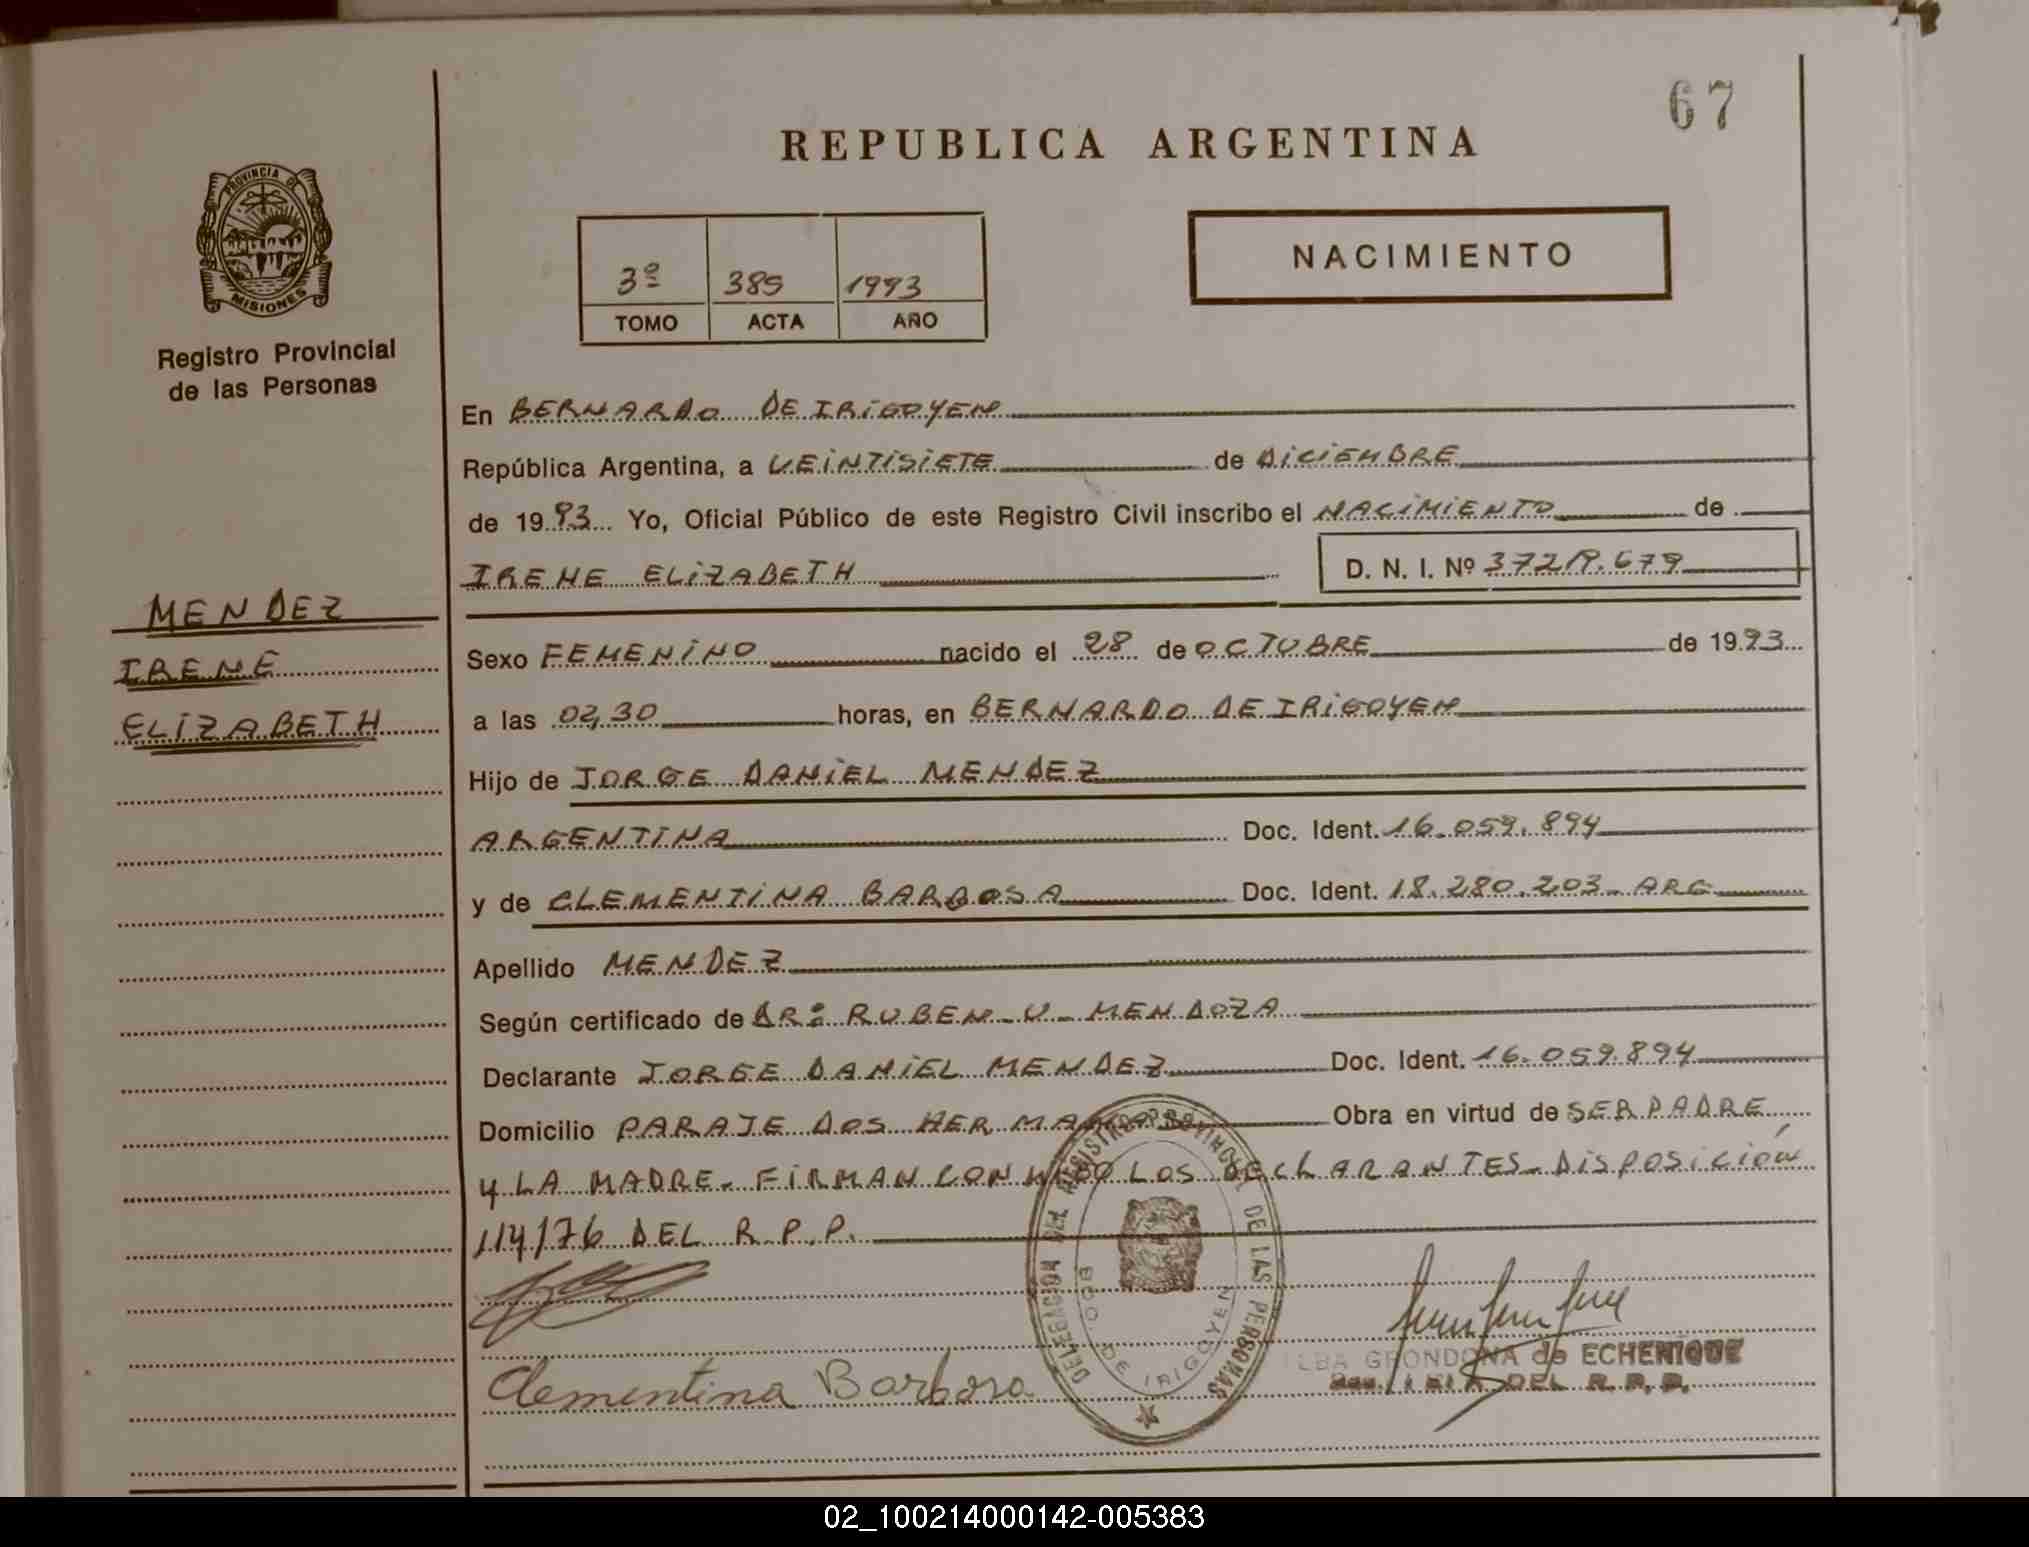 67
REPUBLICA ARGENTINA
PROVINCIA DE
MISIONES
Registro Provincial
de las Personas
3º 389 1993
TOMO ACTA AÑO
NACIMIENTO
En BERNARDO DE IRIGOYEN
República Argentina, a VEINTISIETE de DICIEMBRE
de 1993 Yo, Oficial Público de este Registro Civil inscribo el NACIMIENTO de
IRENE ELIZABETH D. N. I. Nº
MENDEZ
IRENE
ELIZABETH
Sexo FEMENINO nacido el 28 de OCTUBRE de 1993
a las 02,30 horas, en BERNARDO DE IRIGOYEN
Hijo de JORGE DANIEL MENDEZ
ARGENTINA Doc. Ident. 16.059.894
y de CLEMENTINA BARBOSA Doc. Ident. 18.280.203- ARG
Apellido MENDEZ
Según certificado de DR: RUBEN-V-MENDOZA
Declarante JORGE DANIEL MENDEZ Doc. Ident. 16.059.894
Domicilio PARAJE DOS HERMANAS Obra en virtud de SER PADRE
Y LA MADRE. FIRMAN CONMIGO LOS DECLARANTES-DISPOSICIÓN
114/76 DEL R.P.P.
DELEGACION DEL REGISTRO PROVINCIAL DE LAS PERSONAS
BDO DE IRIGOYEN
Clementina Barbosa
ELBA GRONDONA de ECHENIQUE
DEL R.P.P.
02_100214000142-005383